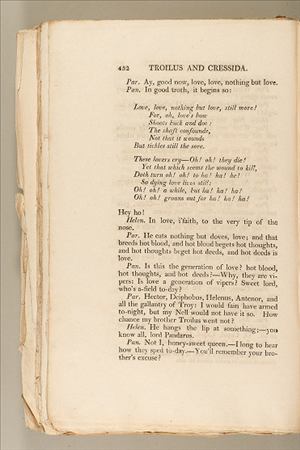 452 TROILUS AND CRESSIDA.
Par. Ay, good now, love, love, nothing but love.
Pan. In good troth, it begins so:
Love, love, nothing but love, still more!
For, oh, love's bow
Shoots buck and doe:
The shaft confounds,
Not that it wounds
But tickles still the sore.
These lovers cry—Oh! oh! they die!
Yet that which seems the wound to kill,
Doth turn oh! oh! to ha! ha! he!
So dying love lives still:
Oh! oh! a while, but ha! ha! ha!
Oh! oh! groans out for ha! ha! ha!
Hey ho!
Helen. In love, i'faith, to the very tip of the
nose.
Par. He eats nothing but doves, love; and that
breeds hot blood, and hot blood begets hot thoughts,
and hot thoughts beget hot deeds, and hot deeds is
love.
Pan. Is this the generation of love? hot blood,
hot thoughts, and hot deeds?—Why, they are vi-
pers: Is love a generation of vipers? Sweet lord,
who's a-field to-day?
Par. Hector, Deiphobus, Helenus, Antenor, and
all the gallantry of Troy: I would fain have armed
to-night, but my Nell would not have it so. How
chance my brother Troilus went not?
Helen. He hangs the lip at something;—you
know all, lord Pandarus.
Pan. Not I, honey-sweet queen.—I long to hear
how they sped to-day.—You'll remember your bro-
ther's excuse?